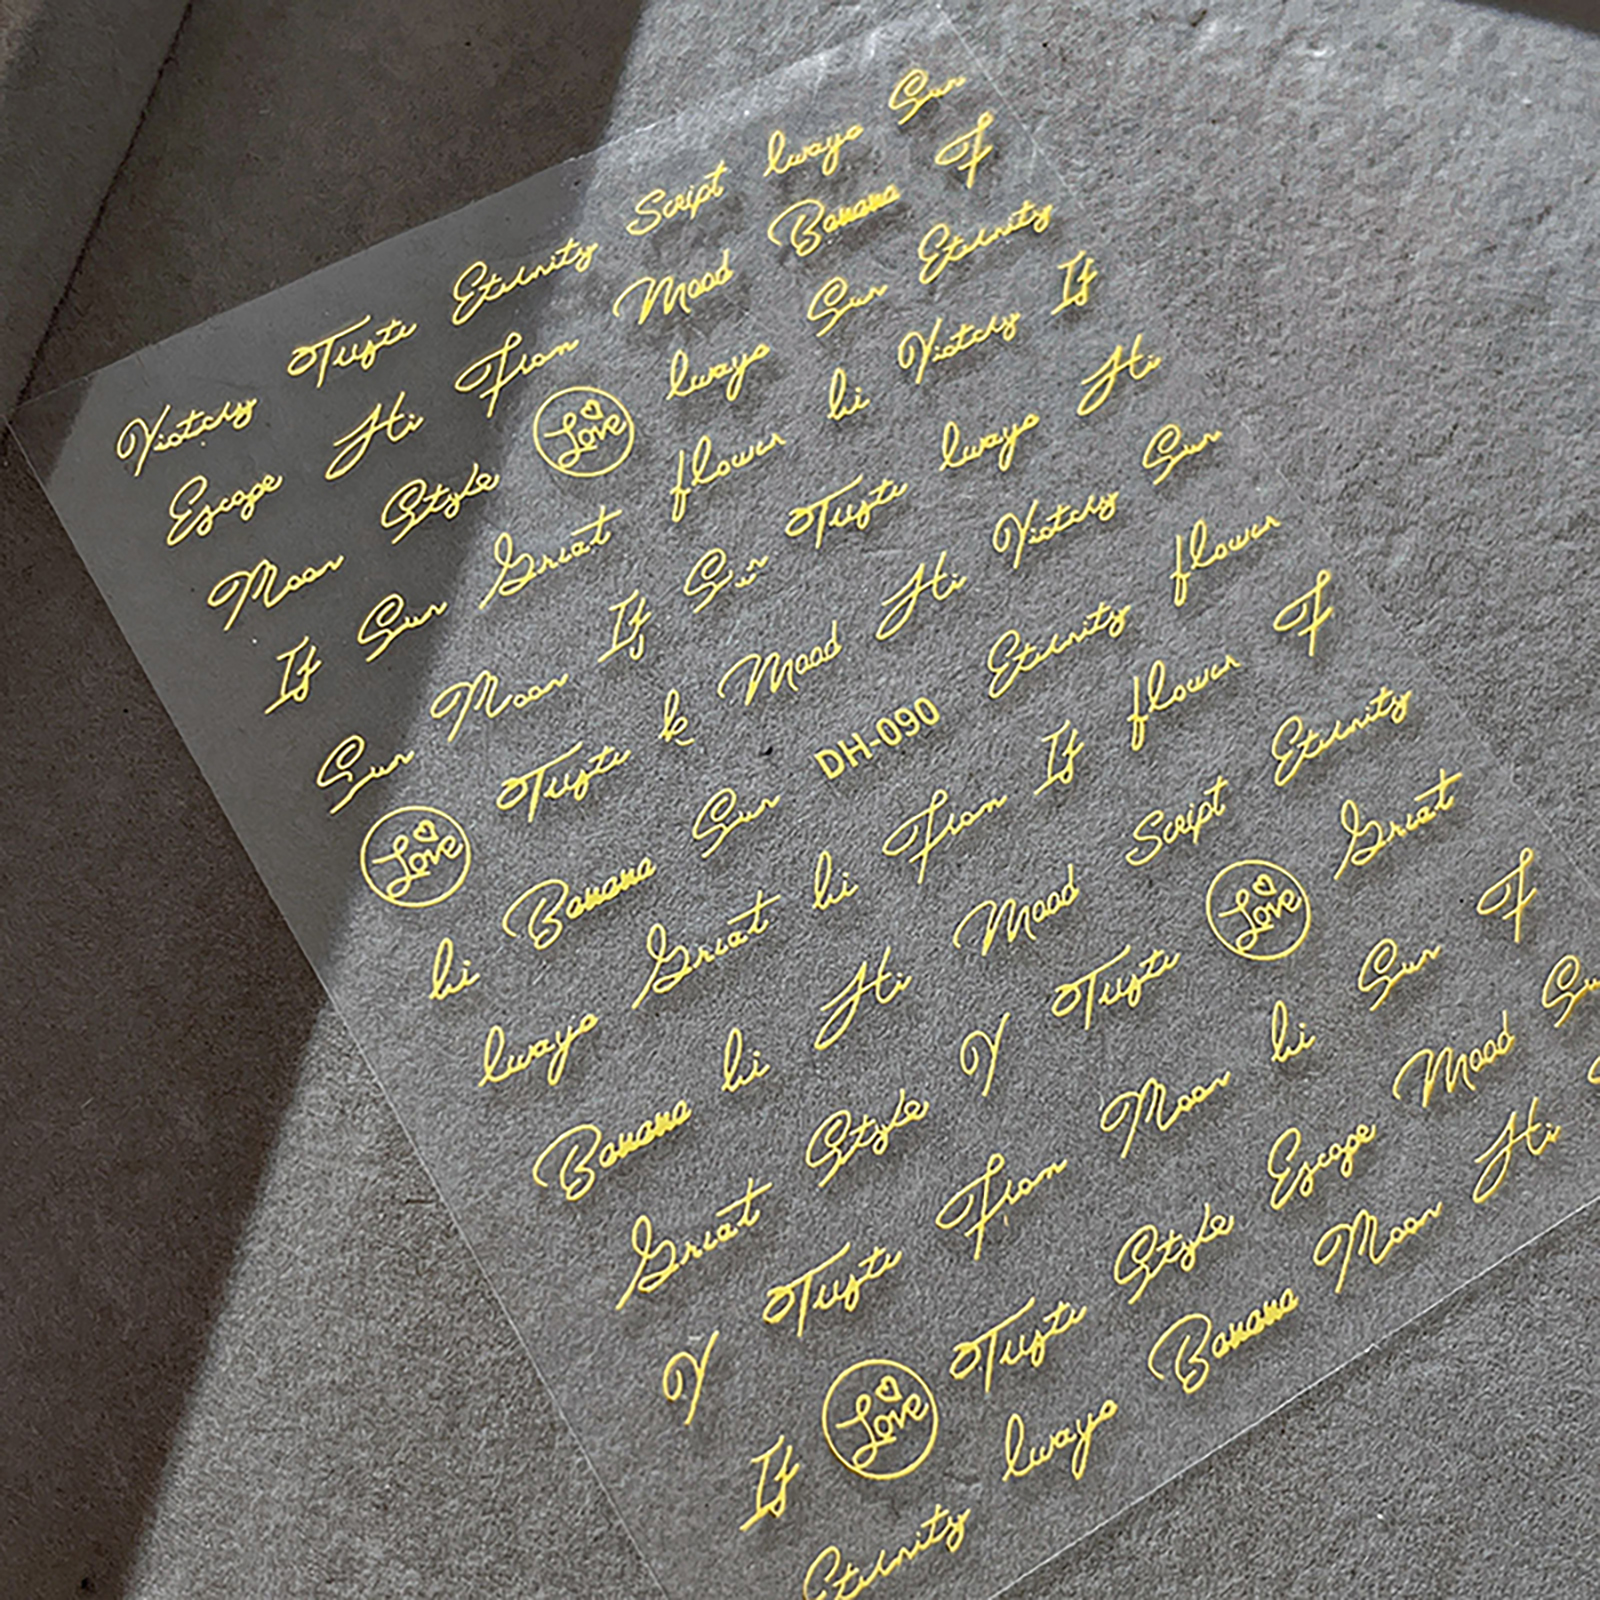 Victory Tuste Eternity Script lways Sun
Escape Hi From Mood Banana F
Moon Style Love lways Sun Eternity
If Sun Great flower hi Victory If
Sun Moon If Sun Tuste lways Hi
Love Tuste k Mood Hi Victory Sun
hi Banana Sun DH-090 Eternity flower
lways Great hi From If flower F
Banana hi Hi Mood Script Eternity
Great Style Y Tuste Love Great
Y Tuste From Moon hi Sun F
If Love Tuste Style Escape Mood
Eternity lways Banana Moon Hi